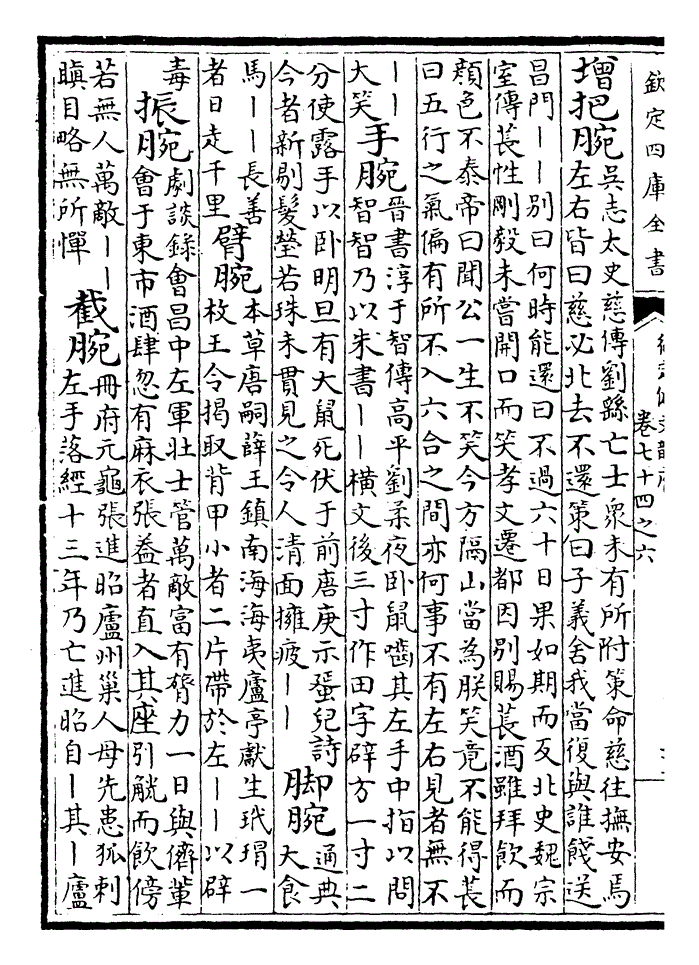 欽定四庫全書
卷七十四之六
增把腕
吳志太史慈傳劉繇亡士衆未有所附策命慈往撫安焉
左右皆曰慈必北去不還策曰子義舍我當復與誰餞送
昌門丨丨別曰何時能還曰不過六十日果如期而反北史魏宗
室傳萇性剛毅未嘗開口而笑孝文遷都因別賜萇酒雖拜飲而
顔色不泰帝曰聞公一生不笑今方隔山當為朕笑竟不能得萇
曰五行之氣偏有所不入六合之間亦何事不有左右見者無不
丨丨
大笑
手腕
晉書淳于智傳高平劉柔夜卧鼠嚙其左手中指以問
智智乃以朱書丨丨橫文後三寸作田字辟方一寸二
分使露手以卧明旦有大鼠死伏于前唐庚示蛩兒詩
今者新剔髮瑩若珠未貫見之令人清面擁疲丨丨
脚腕
通典
大食
馬丨丨長善
者日走千里
臂腕
本草唐嗣薛王鎮南海海夷盧亭獻生玳瑁一
枚王令揭取背甲小者二片帶於左丨丨以辟
毒
振腕
劇談錄會昌中左軍壯士管萬敵富有膂力一日與儕輩
會于東市酒肆忽有麻衣張益者直入其座引觥而飲傍
若無人萬敵丨丨
瞋目略無所憚
截腕
冊府元龜張進昭廬州巢人母先患狐刺
左手落經十三年乃亡進昭自丨其丨廬